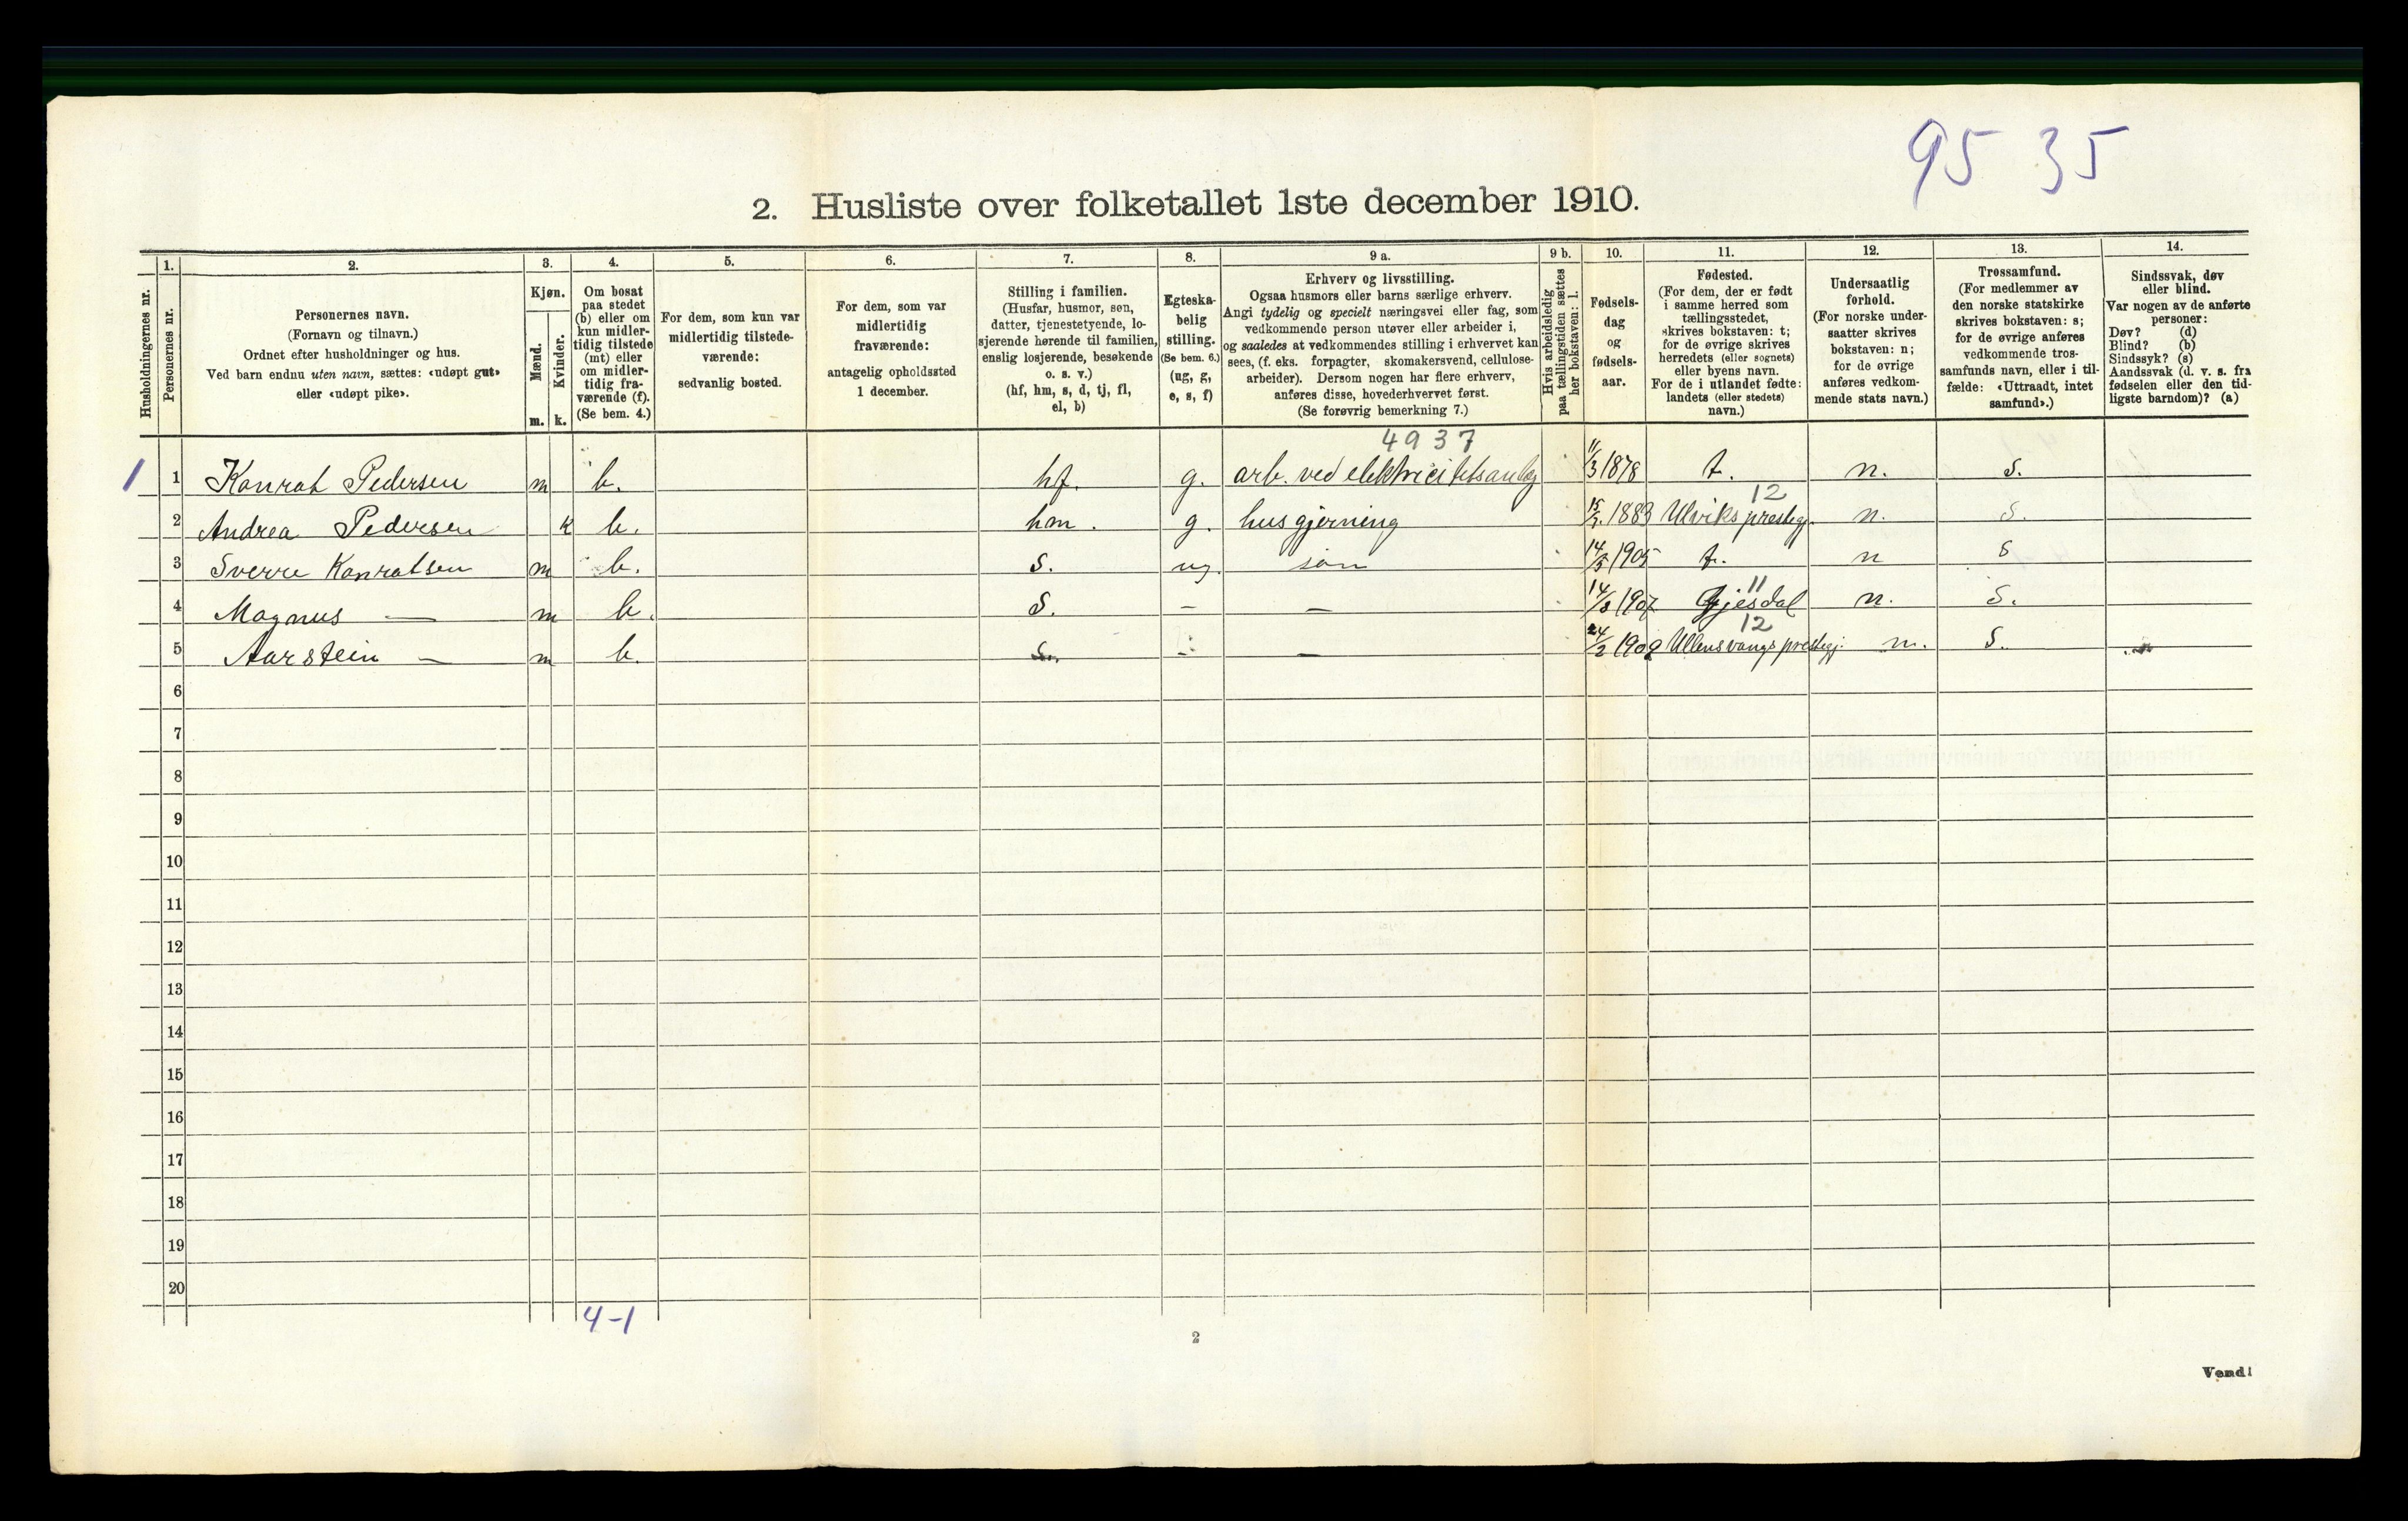 95 35
2. Husliste over folketallet 1ste december 1910.
Husholdningernes nr.
1.
Personernes nr.
2.
Personernes navn.
(Fornavn og tilnavn.)
Ordnet efter husholdninger og hus.
Ved barn endnu uten navn, sættes: «udøpt gut»
eller «udøpt pike».
3.
Kjøn.
Mænd.
Kvinder.
m. k.
4.
Om bosat
paa stedet
(b) eller om
kun midler-
tidig tilstede
(mt) eller
om midler-
tidig fra-
værende (f).
(Se bem. 4.)
5.
For dem, som kun var
midlertidig tilstede-
værende:
sedvanlig bosted.
6.
For dem, som var
midlertidig
fraværende:
antagelig opholdssted
1 december.
7.
Stilling i familien.
(Husfar, husmor, søn,
datter, tjenestetyende, lo-
sjerende hørende til familien,
enslig losjerende, besøkende
o. s. v.)
(hf, hm, s, d, tj, fl,
el, b)
8.
Egteska-
belig
stilling.
(Se bem. 6.)
(ug, g,
e, s, f)
9 a.
Erhverv og livsstilling.
Ogsaa husmors eller barns særlige erhverv.
Angi tydelig og specielt næringsvei eller fag, som
vedkommende person utøver eller arbeider i,
og saaledes at vedkommendes stilling i erhvervet kan
sees, (f. eks. forpagter, skomakersvend, cellulose-
arbeider). Dersom nogen har flere erhverv,
anføres disse, hovederhvervet først.
(Se forøvrig bemerkning 7.)
9 b.
Hvis arbeidsledig
paa tællingstiden sættes
her bokstaven: l.
10.
Fødsels-
dag
og
fødsels-
aar.
11.
Fødested.
(For dem, der er født
i samme herred som
tællingsstedet,
skrives bokstaven: t;
for de øvrige skrives
herredets (eller sognets)
eller byens navn.
For de i utlandet fødte:
landets (eller stedets)
navn.)
12.
Undersaatlig
forhold.
(For norske under-
saatter skrives
bokstaven: n;
for de øvrige
anføres vedkom-
mende stats navn.)
13.
Trossamfund.
(For medlemmer av
den norske statskirke
skrives bokstaven: s;
for de øvrige anføres
vedkommende tros-
samfunds navn, eller i til-
fælde: «Uttraadt, intet
samfund».)
14.
Sindssvak, døv
eller blind.
Var nogen av de anførte
personer:
Døv? (d)
Blind? (b)
Sindssyk? (s)
Aandssvak (d. v. s. fra
fødselen eller den tid-
ligste barndom)? (a)
4937
1 1 Konrat Pedersen m b. hf. g. arb. ved elektricitetsanlæg 11/3 1878 t. n. s.
12
2 Andrea Pedersen k b. hm. g. husgjerning 1883 Ulviks prestegj. n. s.
3 Sverre Konratsen m b. s. ug. søn 14/5 1905 t. n s
11
4 Magnus — m b. s. — — 14/8 1907 Gjesdal n. s.
12
5 Aarstein — m b. s. — — 24/2 1909 Ullensvangs prestegj. n. s.
6
7
8
9
10
11
12
13
14
15
16
17
18
19
20
4-1
2
Vend!